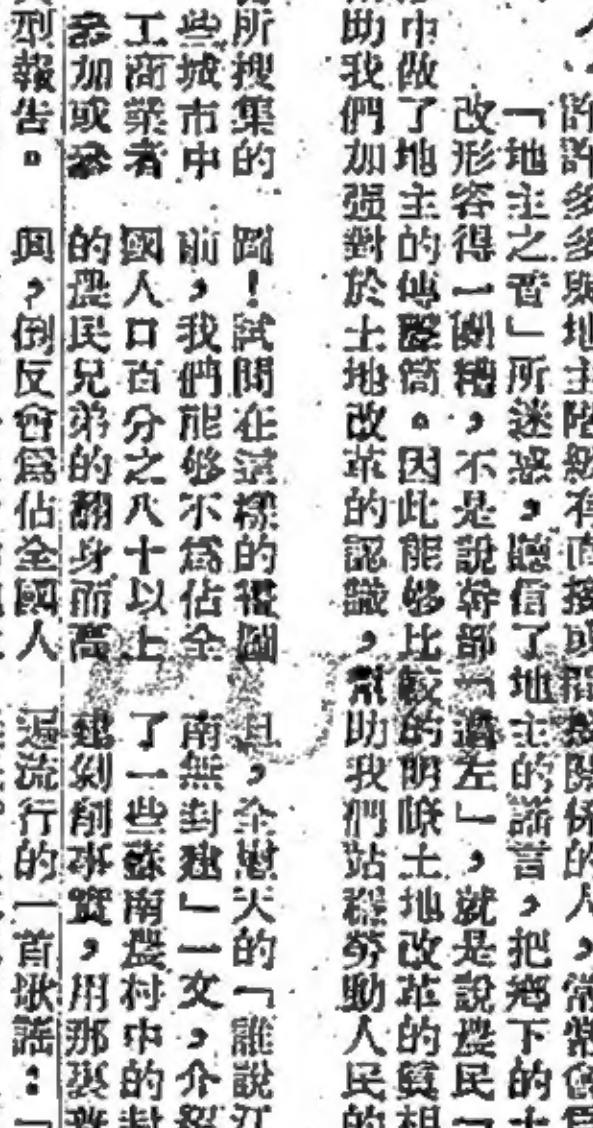 許許多多與地主階級有直接或間接關係的人,常常會為
「地主之音」所迷惑,聽信了地主的謠言,把鄉下的土
改形容得一團糟,不是說幹部「過左」,就是說農民「
中做了地主的傳聲筒。因此能够比較的明瞭土地改革的眞相
助我們加强對於土地改革的認識,幫助我們站穩勞動人民的
所搜集的
些城市中
工商業者
參加或參
型報告。
圖!試問在這樣的圖
前,我們能够不爲佔全
國人口百分之八十以上
的農民兄弟的翻身而高
興,倒反會爲佔全國人
且,全天的「誰說江
南無封建」一文,介紹
了一些蘇南農村中的封
建剝削事實,用那裏普
遍流行的一首歌謠:「